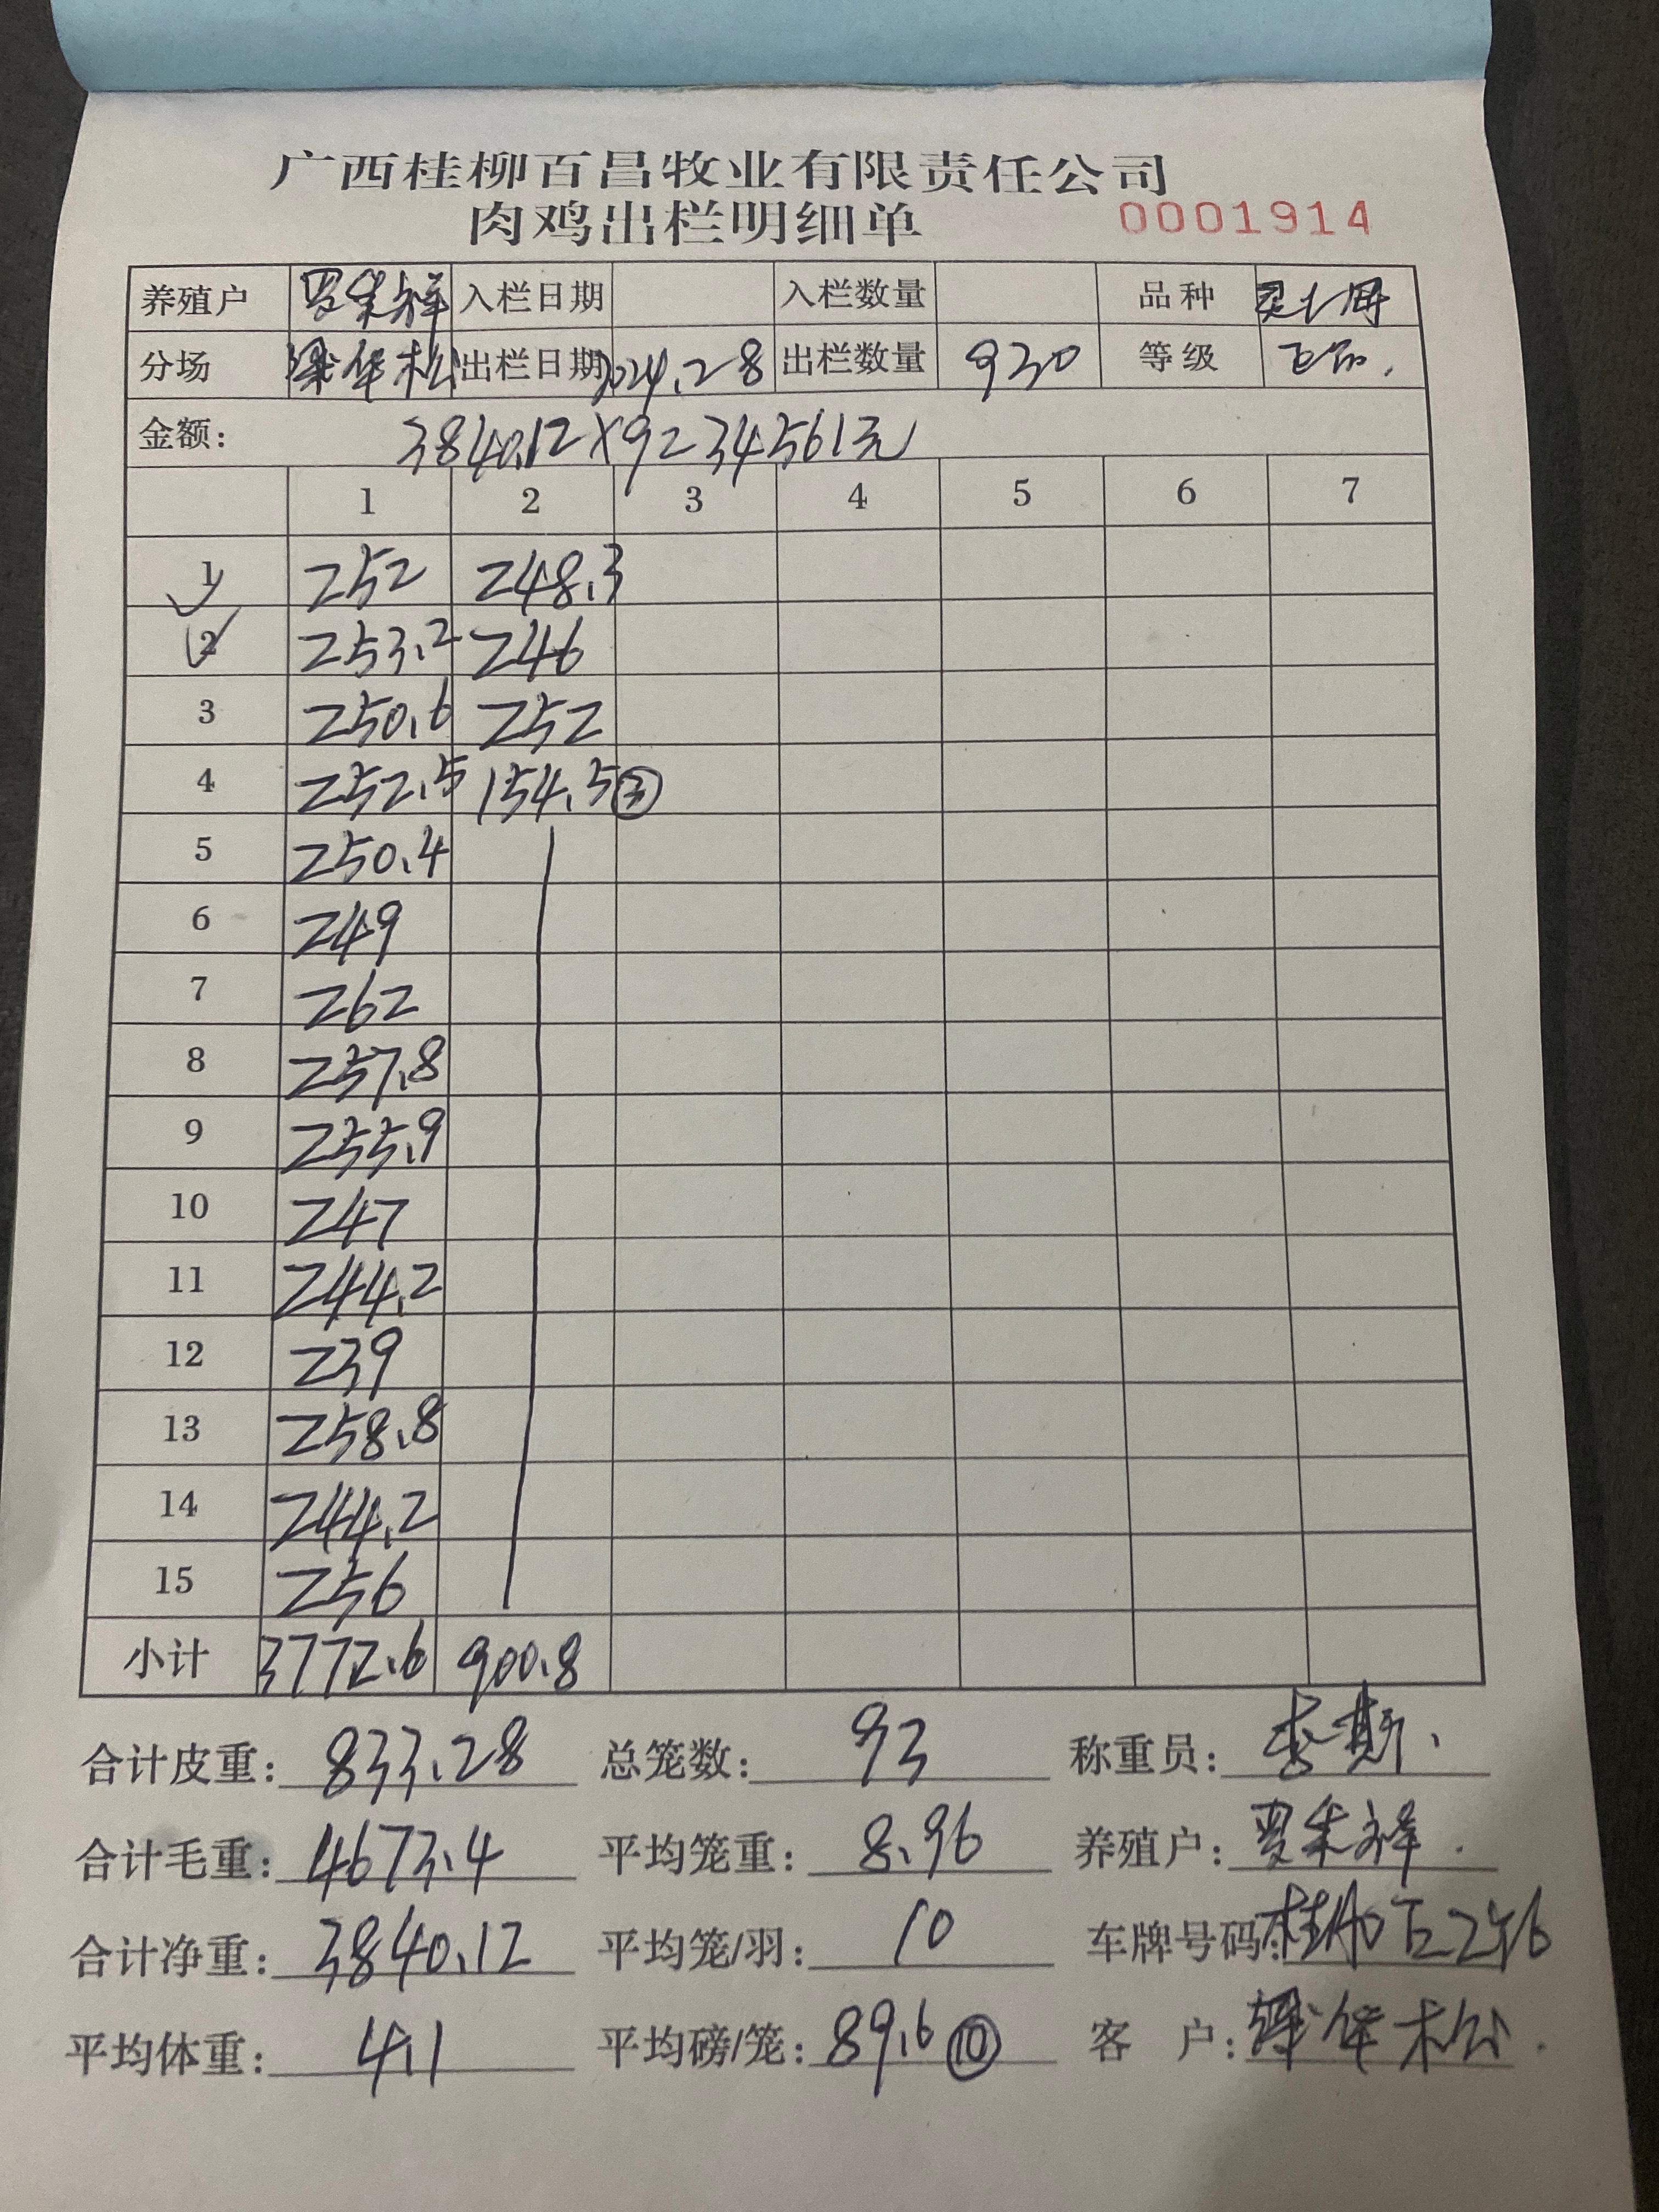 广西桂柳百昌牧业有限责任公司
肉鸡出栏明细单 0001914
养殖户 入栏日期 入栏数量 品种
分场 梁华松 出栏日期 2024.28 出栏数量 930 等级 正品.
金额: 3840.12×9.2 34561元
1 2 3 4 5 6 7
1 252 248.3
2 253.2 246
3 250.6 252
4 252.5 154.5 ③
5 250.4
6 249
7 262
8 257.8
9 255.9
10 247
11 244.2
12 239
13 258.8
14 244.2
15 256
小计 3772.6 900.8
合计皮重: 833.28 总笼数: 93 称重员:
合计毛重: 4673.4 平均笼重: 8.96 养殖户:
合计净重: 3840.12 平均笼/羽: 10 车牌号码:
平均体重: 4.1 平均磅/笼: 89.6 ⑩ 客户: 梁华松.